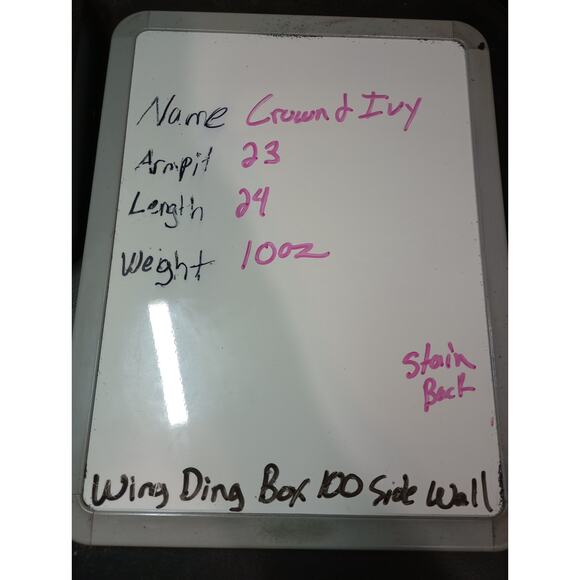 Name Crown & Ivy
Armpit 23
Length 24
Weight 10oz
Stain
Back
Wing Ding Box 100 Side Wall